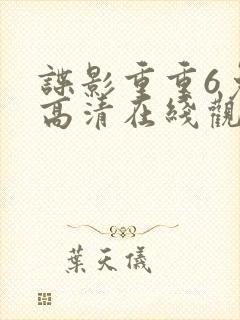 諜影重重6免
高清在綫觀
葉天儀